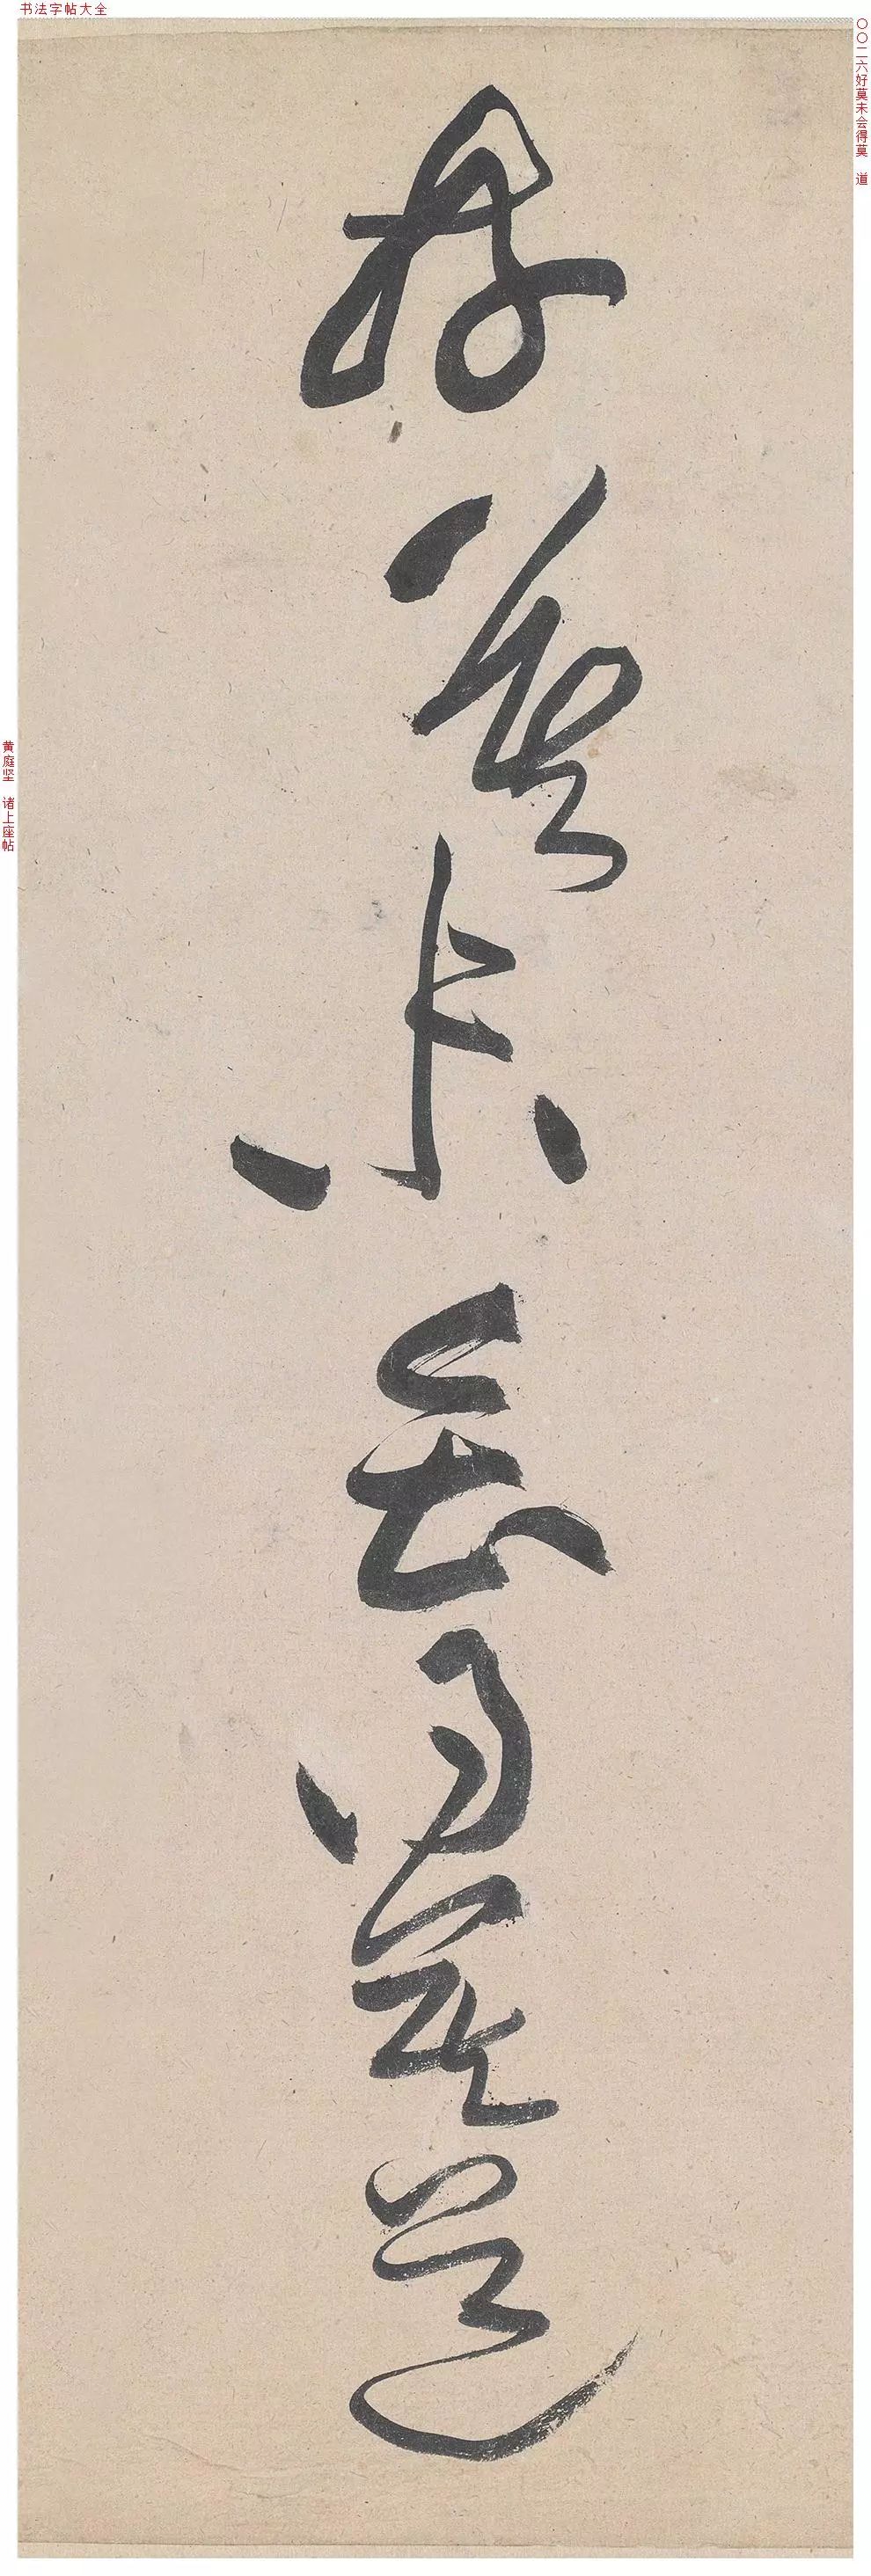 书法字帖大全
〇〇二六好莫未会得莫 道
好莫未会得莫道
黄庭坚 诸上座帖